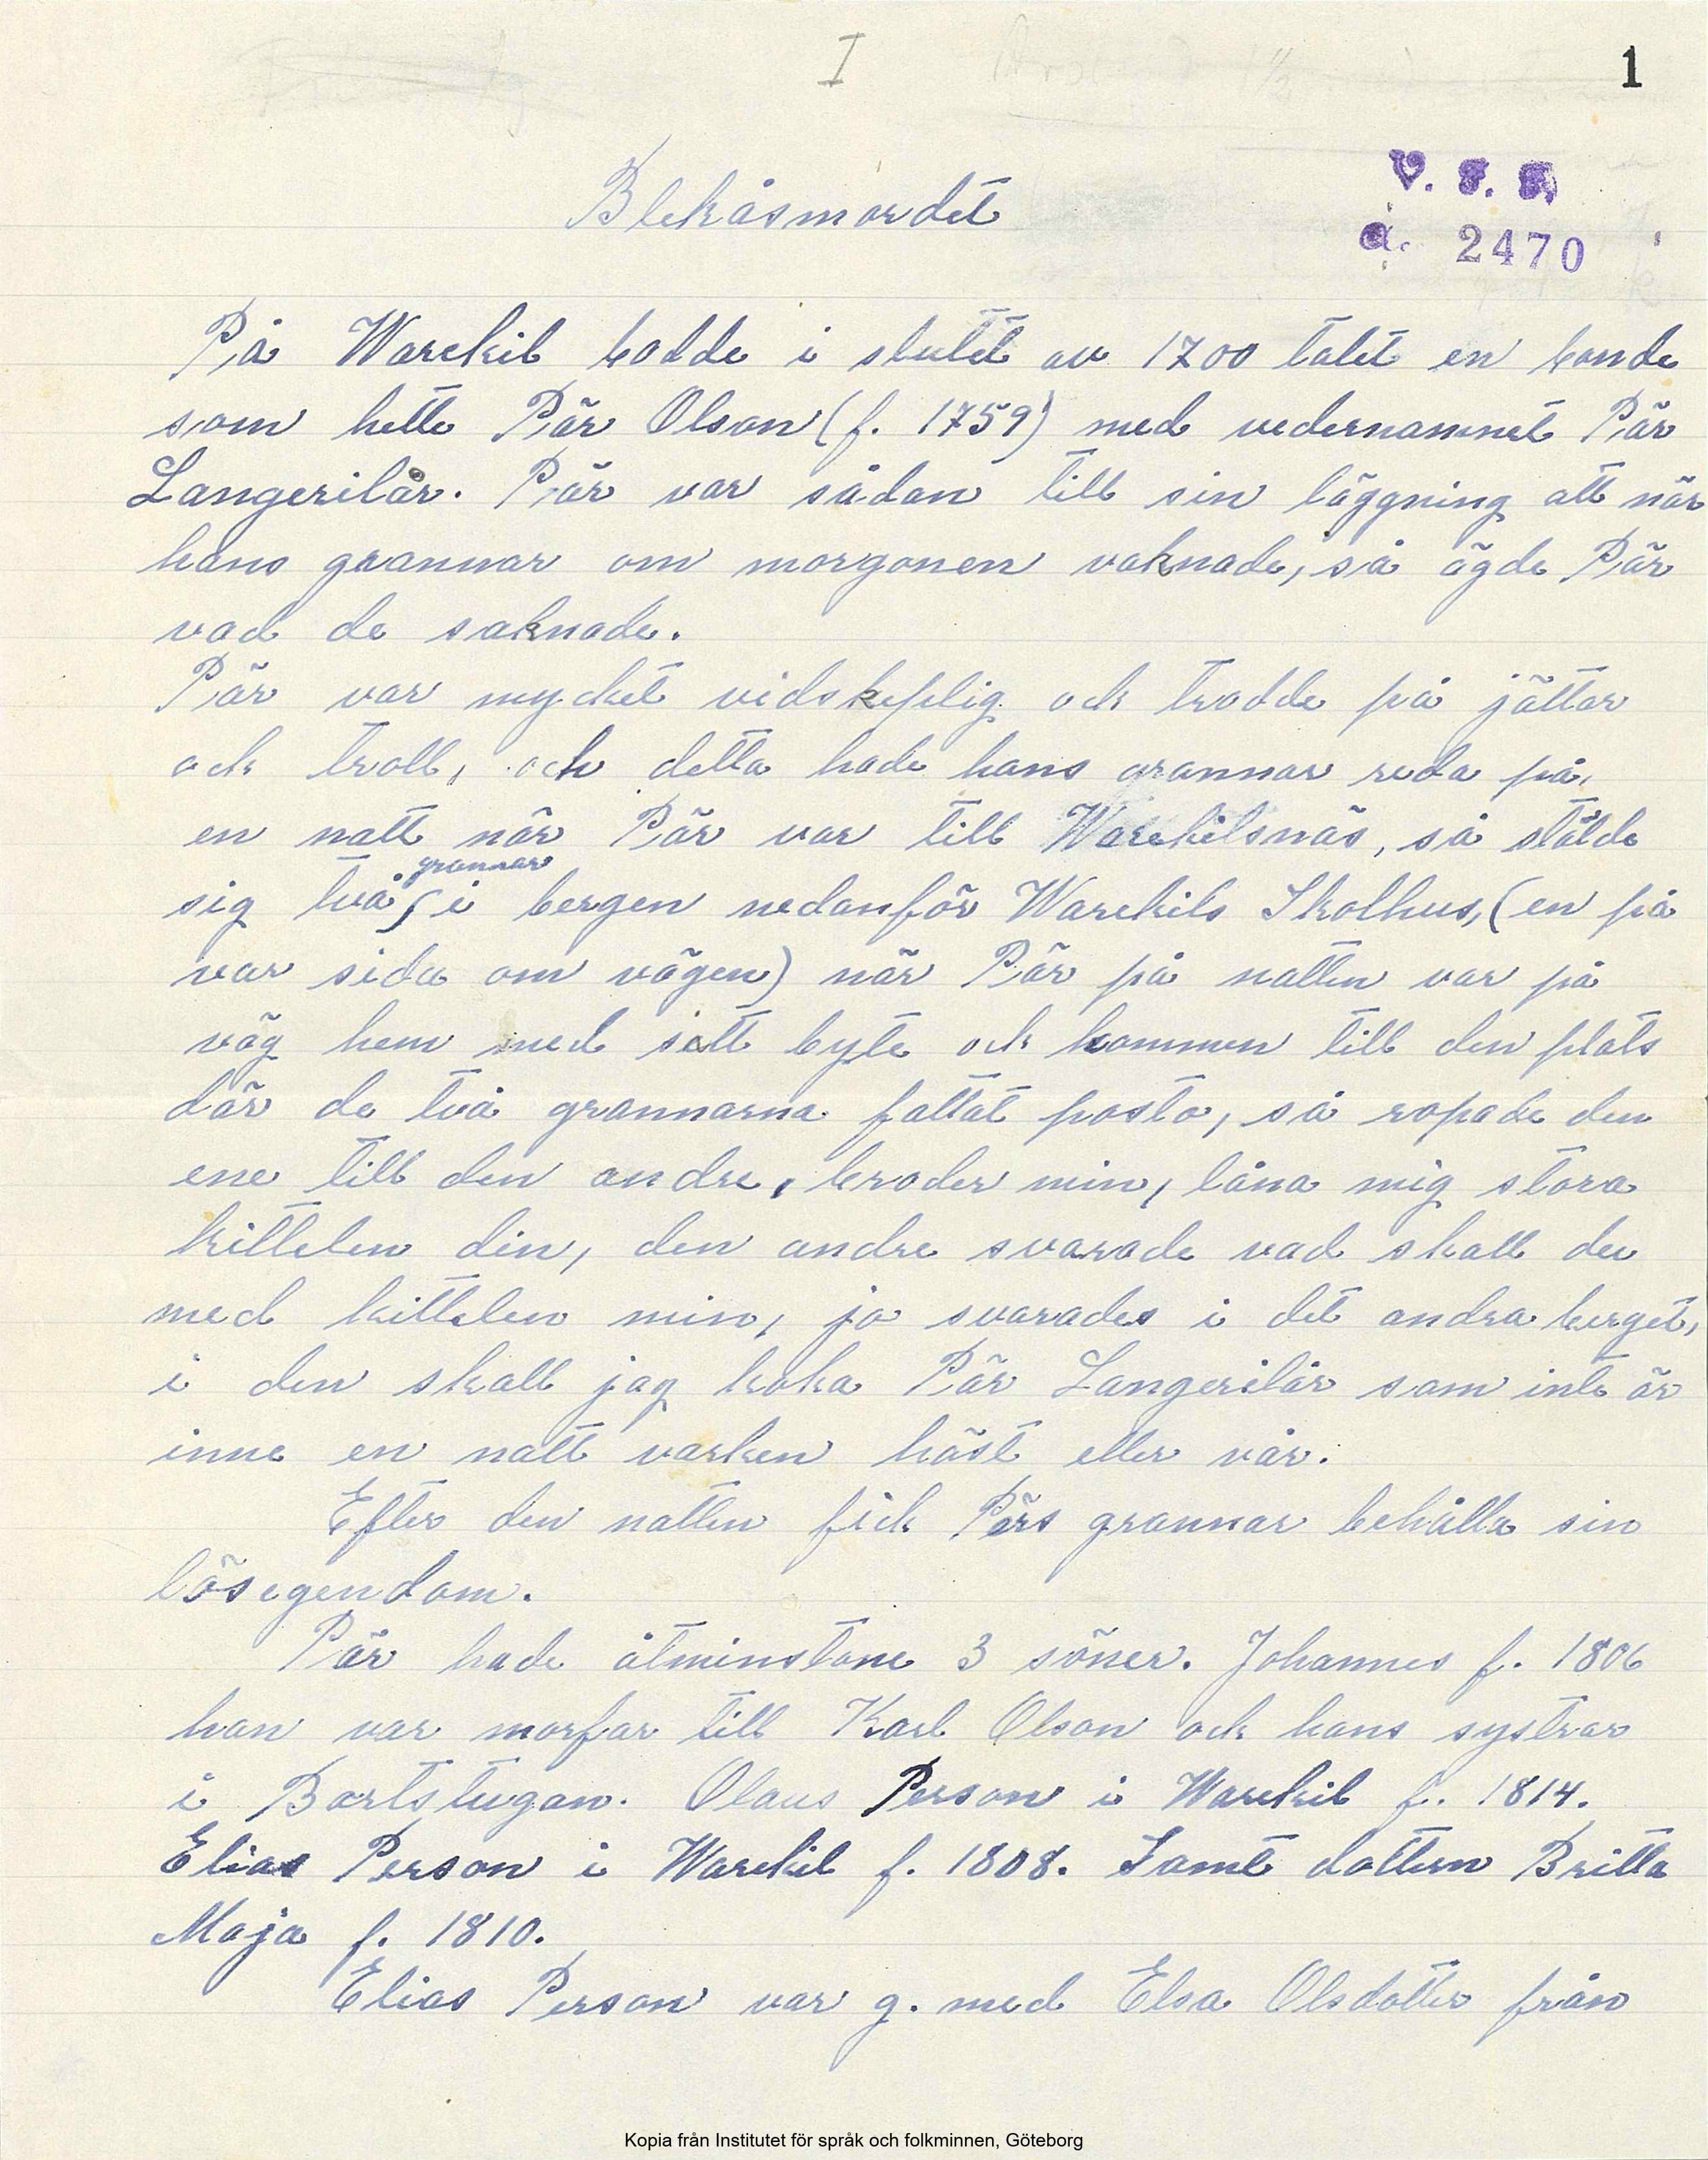 I
1
V. F. F.
a. 2470
Blekåsmordet
På Warekil bodde i slutet av 1700 talet en bonde
som hette Pär Olson (f. 1759) med vedernamnet Pär
Langerilår. Pär var sådan till sin läggning att när
hans grannar om morgonen vaknade, så ägde Pär
vad de saknade.
Pär var mycket vidskeplig och trodde på jättar
och troll, och detta hade hans grannar reda på,
en natt när Pär var till Warekilsnäs, så stälde
grannar
sig två i bergen nedanför Warekils Skolhus, (en på
var sida om vägen) när Pär på natten var på
väg hem med sitt byte och kommen till den plats
där de två grannarna fattat posto, så ropade den
ene till den andre, broder min, låna mig stora
kittelen din, den andre svarade vad skall du
med kittelen min, jo svarades i det andra berget,
i den skall jag koka Pär Langerilår som inte är
inne en natt varken höst eller vår.
Efter den natten fick Pärs grannar behålla sin
lösegendom.
Pär hade åtminstone 3 söner. Johannes f. 1806
han var morfar till Karl Olson och hans systrar
i Bortstugan. Olaus Person i Warekil f. 1814.
Elias Person i Warekil f. 1808. Samt dottern Britta
Maja f. 1810.
Elias Person var g. med Elsa Olsdotter från
Kopia från Institutet för språk och folkminnen, Göteborg